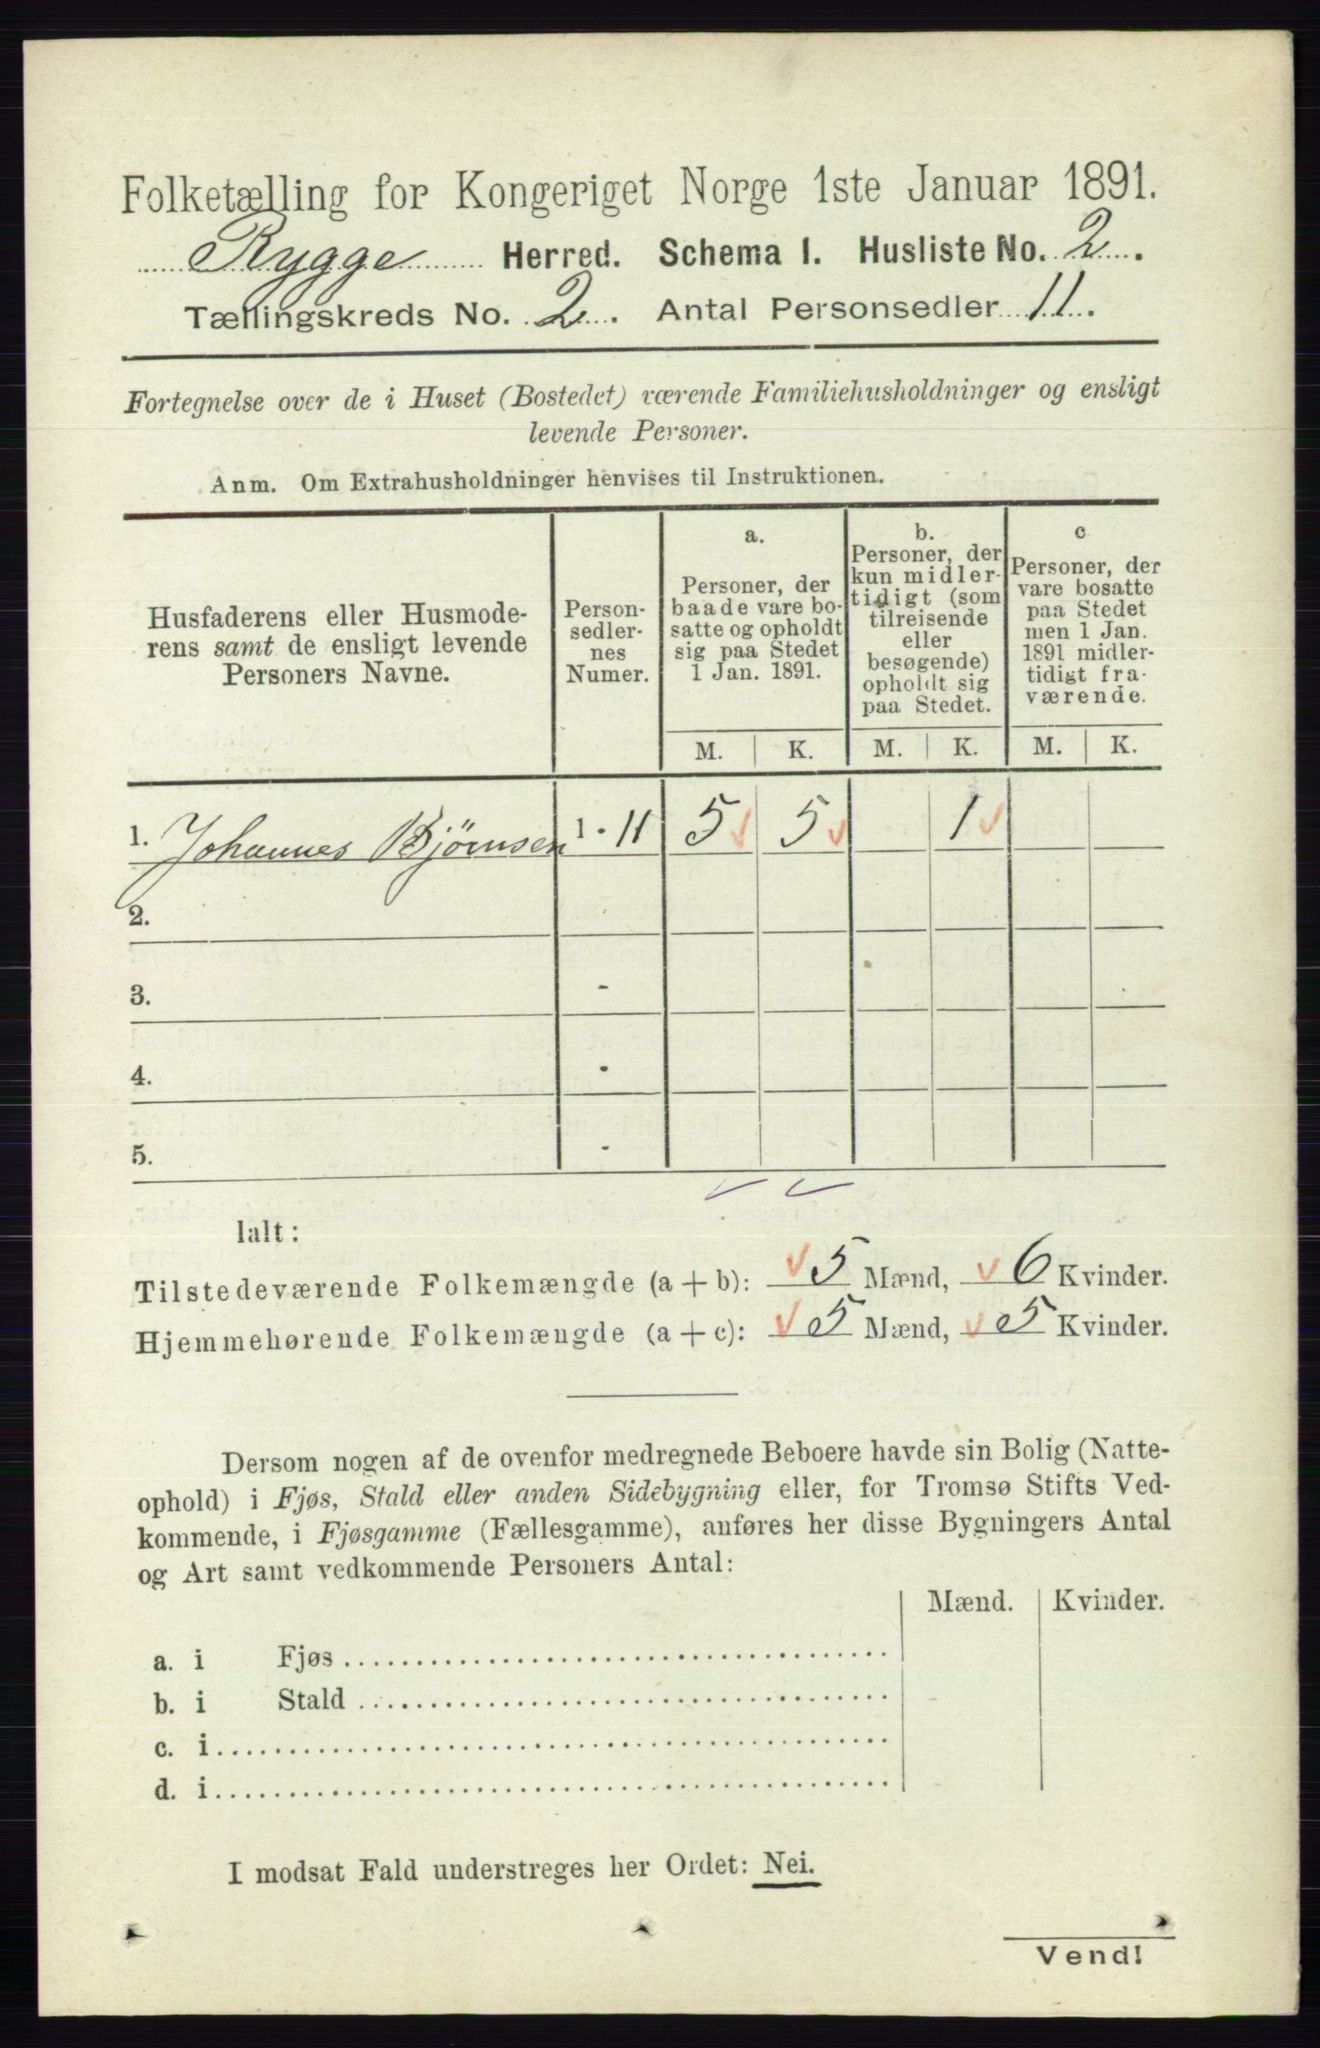 Folketælling for Kongeriget Norge 1ste Januar 1891.
Rygge Herred. Schema I. Husliste No. 2.
Tællingskreds No. 2. Antal Personsedler 11.
Fortegnelse over de i Huset (Bostedet) værende Familiehusholdninger og ensligt
levende Personer.
Anm. Om Extrahusholdninger henvises til Instruktionen.
Husfaderens eller Husmode-
rens samt de ensligt levende
Personers Navne.
Person-
sedler-
nes
Numer.
a.
Personer, der
baade vare bo-
satte og opholdt
sig paa Stedet
1 Jan. 1891.
b.
Personer, der
kun midler-
tidigt (som
tilreisende
eller
besøgende)
opholdt sig
paa Stedet.
c
Personer, der
vare bosatte
paa Stedet
men 1 Jan.
1891 midler-
tidigt fra-
værende.
M. K. M. K. M. K.
1. Johannes Bjørnsen 1 - 11 5 5 1
2. -
3. -
4. -
5. -
Ialt:
Tilstedeværende Folkemængde (a + b): 5 Mænd, 6 Kvinder.
Hjemmehørende Folkemængde (a + c): 5 Mænd, 5 Kvinder.
Dersom nogen af de ovenfor medregnede Beboere havde sin Bolig (Natte-
ophold) i Fjøs, Stald eller anden Sidebygning eller, for Tromsø Stifts Ved-
kommende, i Fjøsgamme (Fællesgamme), anføres her disse Bygningers Antal
og Art samt vedkommende Personers Antal:
Mænd. Kvinder.
a. i Fjøs
b. i Stald
c. i
d. i
I modsat Fald understreges her Ordet: Nei.
Vend!